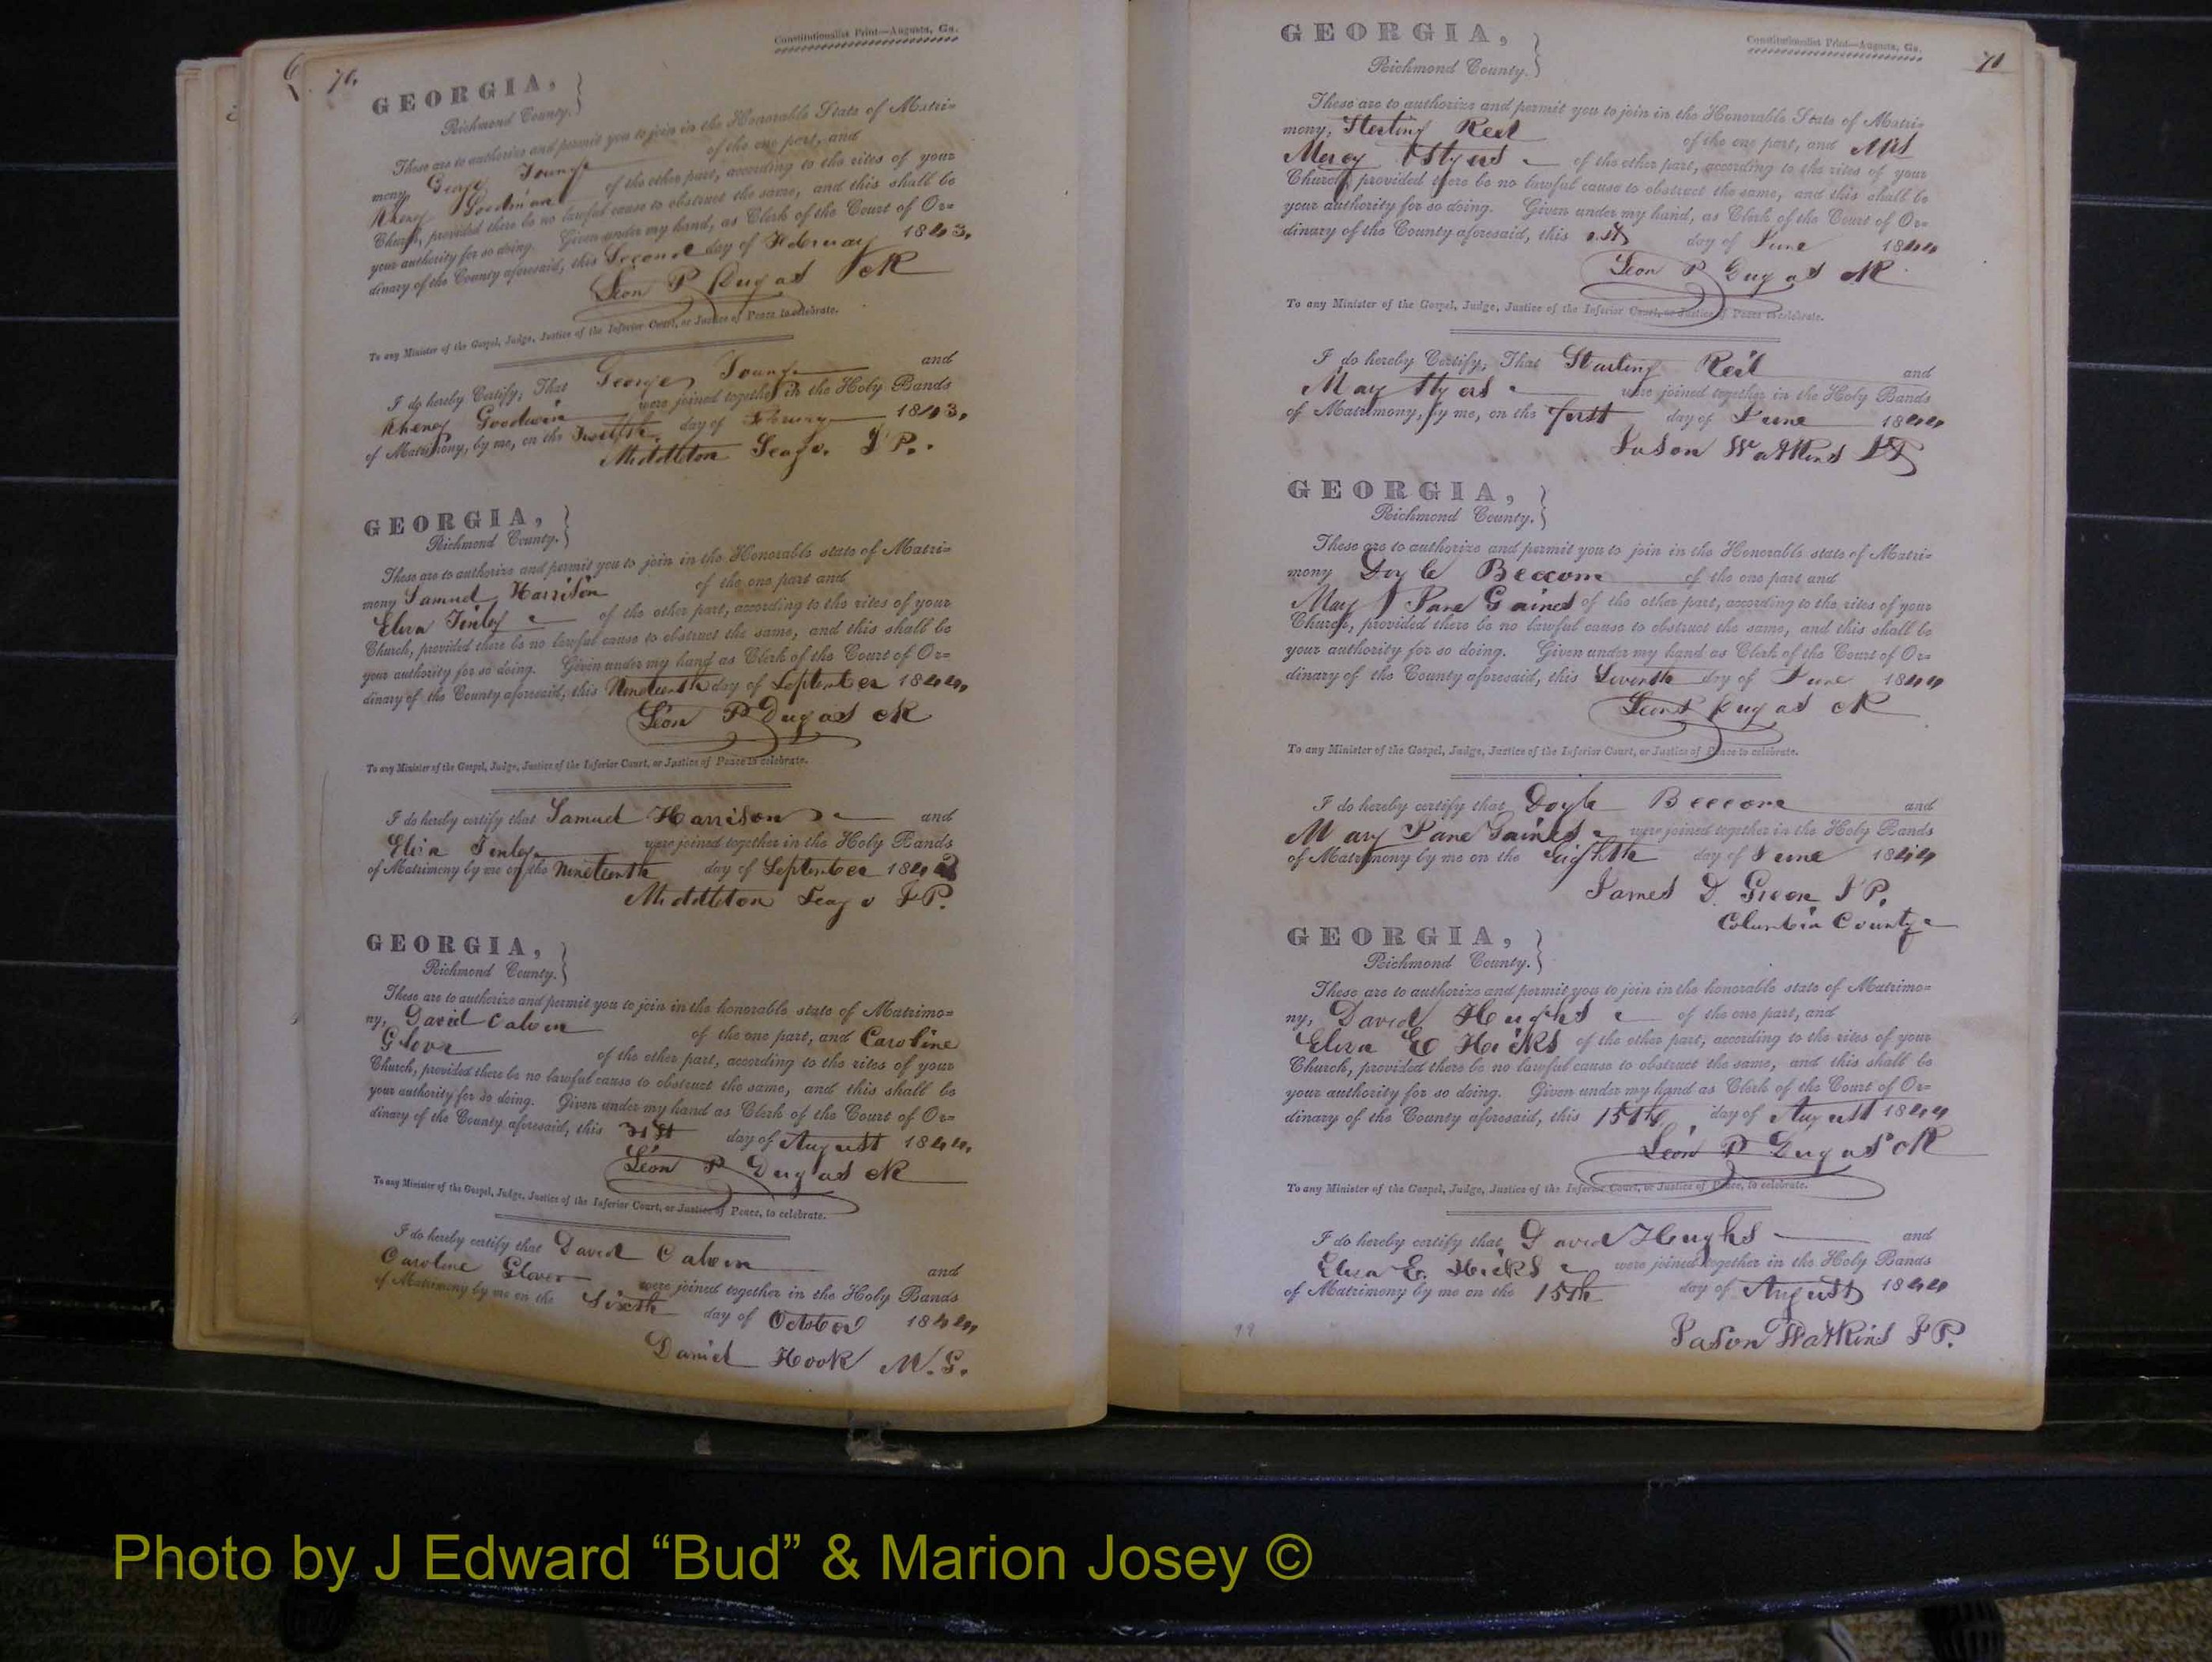 70,
Constitutionalist Print—Augusta, Ga.
GEORGIA,
Richmond County.
These are to authorize and permit you to join in the Honorable State of Matri=
mony, George Young of the one part, and
Goodwin of the other part, according to the rites of your
Church, provided there be no lawful cause to obstruct the same, and this shall be
your authority for so doing. Given under my hand, as Clerk of the Court of Or=
dinary of the County aforesaid, this Second day of February 1843,
Leon P Dugas clk
To any Minister of the Gospel, Judge, Justice of the Inferior Court, or Justice of Peace to celebrate.
I do hereby Certify, That George Young and
Goodwin were joined together in the Holy Bands
of Matrimony, by me, on the Twelfth day of 1843,
Middleton Seago J P.
GEORGIA,
Richmond County.
These are to authorize and permit you to join in the Honorable state of Matri=
mony Samuel Harrison of the one part and
Eliza Finley of the other part, according to the rites of your
Church, provided there be no lawful cause to obstruct the same, and this shall be
your authority for so doing. Given under my hand as Clerk of the Court of Or=
dinary of the County aforesaid, this Nineteenth day of September 1844,
Leon P Dugas clk
To any Minister of the Gospel, Judge, Justice of the Inferior Court, or Justice of Peace to celebrate.
I do hereby certify that Samuel Harrison and
Eliza Finley were joined together in the Holy Bands
of Matrimony by me on the Nineteenth day of September
Middleton Seago J P.
GEORGIA,
Richmond County.
These are to authorize and permit you to join in the honorable state of Matrimo=
ny, David Calvin of the one part, and Caroline
Glover of the other part, according to the rites of your
Church, provided there be no lawful cause to obstruct the same, and this shall be
your authority for so doing. Given under my hand as Clerk of the Court of Or=
dinary of the County aforesaid, this 31st day of August 1844,
Leon P Dugas clk
To any Minister of the Gospel, Judge, Justice of the Inferior Court, or Justice of Peace, to celebrate.
I do hereby certify that David Calvin and
Caroline Glover were joined together in the Holy Bands
of Matrimony by me on the Sixth day of October 1844,
Daniel Hook M. G.
Constitutionalist Print—Augusta, Ga.
71
GEORGIA,
Richmond County.
These are to authorize and permit you to join in the Honorable State of Matri=
mony, Sterling Reid of the one part, and Mrs
Styers of the other part, according to the rites of your
Church, provided there be no lawful cause to obstruct the same, and this shall be
your authority for so doing. Given under my hand, as Clerk of the Court of Or=
dinary of the County aforesaid, this 1st day of June 1844
Leon P Dugas clk
To any Minister of the Gospel, Judge, Justice of the Inferior Court, or Justice of Peace to celebrate.
I do hereby Certify, That Starling Reid and
Mary Styers were joined together in the Holy Bands
of Matrimony, by me, on the first day of June 1844
Jason Watkins JP
GEORGIA,
Richmond County.
These are to authorize and permit you to join in the Honorable state of Matri=
mony Doyle Beecom of the one part and
Mary Jane Gaines of the other part, according to the rites of your
Church, provided there be no lawful cause to obstruct the same, and this shall be
your authority for so doing. Given under my hand as Clerk of the Court of Or=
dinary of the County aforesaid, this Seventh day of June 1844
Leon P Dugas clk
To any Minister of the Gospel, Judge, Justice of the Inferior Court, or Justice of Peace to celebrate.
I do hereby certify that Doyle and
Mary Jane Gaines were joined together in the Holy Bands
of Matrimony by me on the Eighth day of June 1844
James D. Green J P.
Columbia County
GEORGIA,
Richmond County.
These are to authorize and permit you to join in the honorable state of Matrimo=
ny, David Heughs of the one part, and
Eliza E Hicks of the other part, according to the rites of your
Church, provided there be no lawful cause to obstruct the same, and this shall be
your authority for so doing. Given under my hand as Clerk of the Court of Or=
dinary of the County aforesaid, this 15th day of August 1844
Leon P Dugas clk
To any Minister of the Gospel, Judge, Justice of the Inferior Court, or Justice of Peace, to celebrate.
I do hereby certify that David Heughs and
Eliza E. Hicks were joined together in the Holy Bands
of Matrimony by me on the 15th day of August 1844
Jason Watkins J P.
Photo by J Edward “Bud” & Marion Josey ©